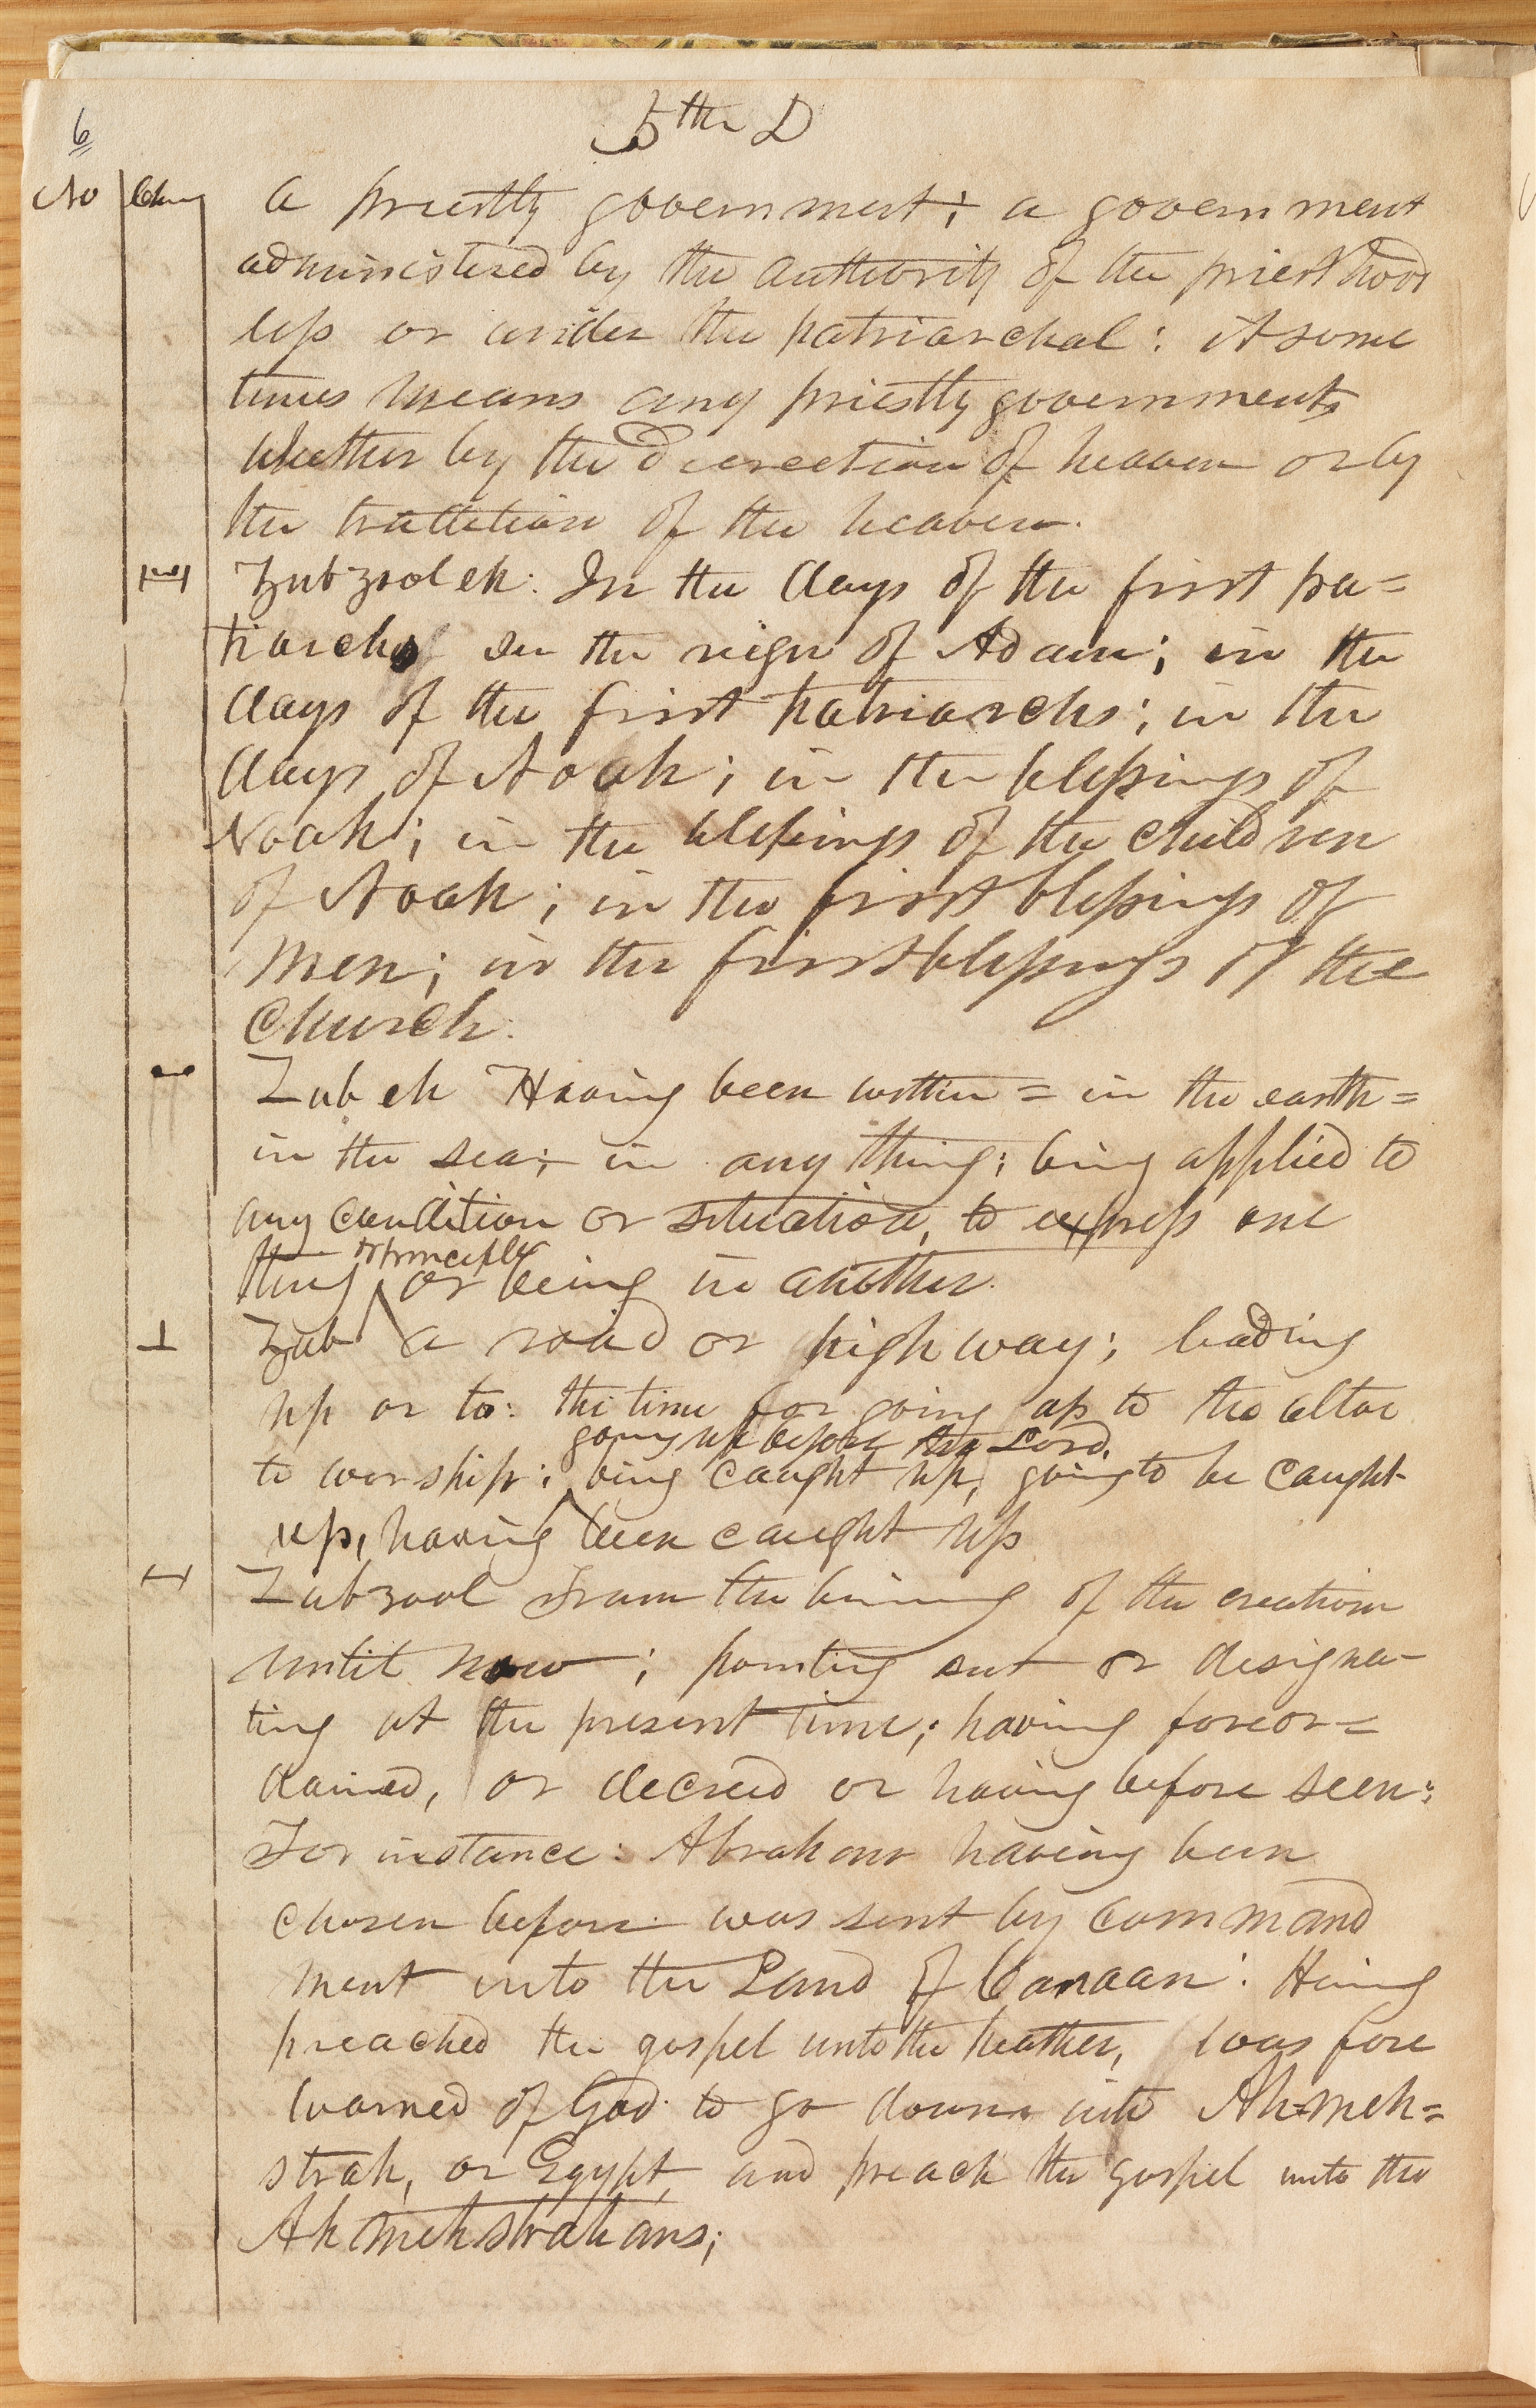 6
5th D
No Char
a priestly government; a government
administered by the authority of the priesthood
less or under the patriarchal: it some
times means any priestly government,
whether by the direction of heaven or by
the tradition of the heaven.
Zubzool eh: In the days of the first pa=
triarchs In the reign of Adam; in the
days of the first patriarchs; in the
days of Noah; in the blessings of
Noah; in the blessings of the children
of Noah; in the first blessings of
men; in the first blessings of the
church.
Zub eh Having been within = in the earth=
in the sea; in any thing; being applied to
any condition or situation, to express one
or principle
thing or being in another.
Zub a road or high way; leading
up or to: the time for going up to the altar
going up before the Lord,
to worship; being caught up, going to be caught
up, having been caught up
Zubzool From the bining of the creation
until now; pointing out or designa-
ting at the present time; having foreor=
dained, or decreed or having before seen:
For instance: Abraham having been
chosen before was sent by command
ment into the Land of Canaan: Having
preached the gospel unto the heathen, was fore
warned of God to go down into Ah=meh=
strah, or Egypt, and preach the gospel unto the
Ah meh strah ans;